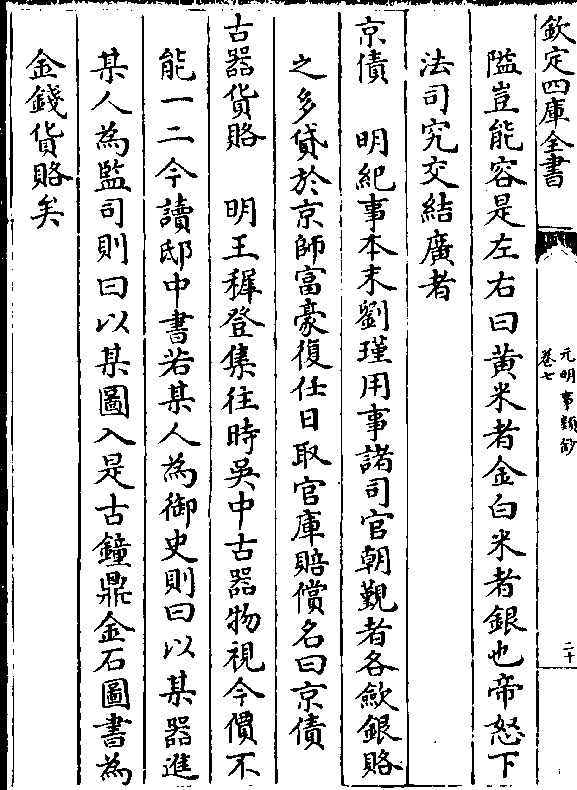 欽定四庫全書
元明事類鈔
卷七
二十
隘豈能容是左右曰黄米者金白米者銀也帝怒下
法司究交結廣者
京債　明紀事本末劉瑾用事諸司官朝覲者各歛銀賂
之多貸於京師富豪復任日取官庫賠償名曰京債
古器貨賂　明王穉登集往時吳中古器物視今價不
能一二今讀邸中書若某人為御史則曰以某器進
某人為監司則曰以某圖入是古鐘鼎金石圖書為
金錢貨賂矣